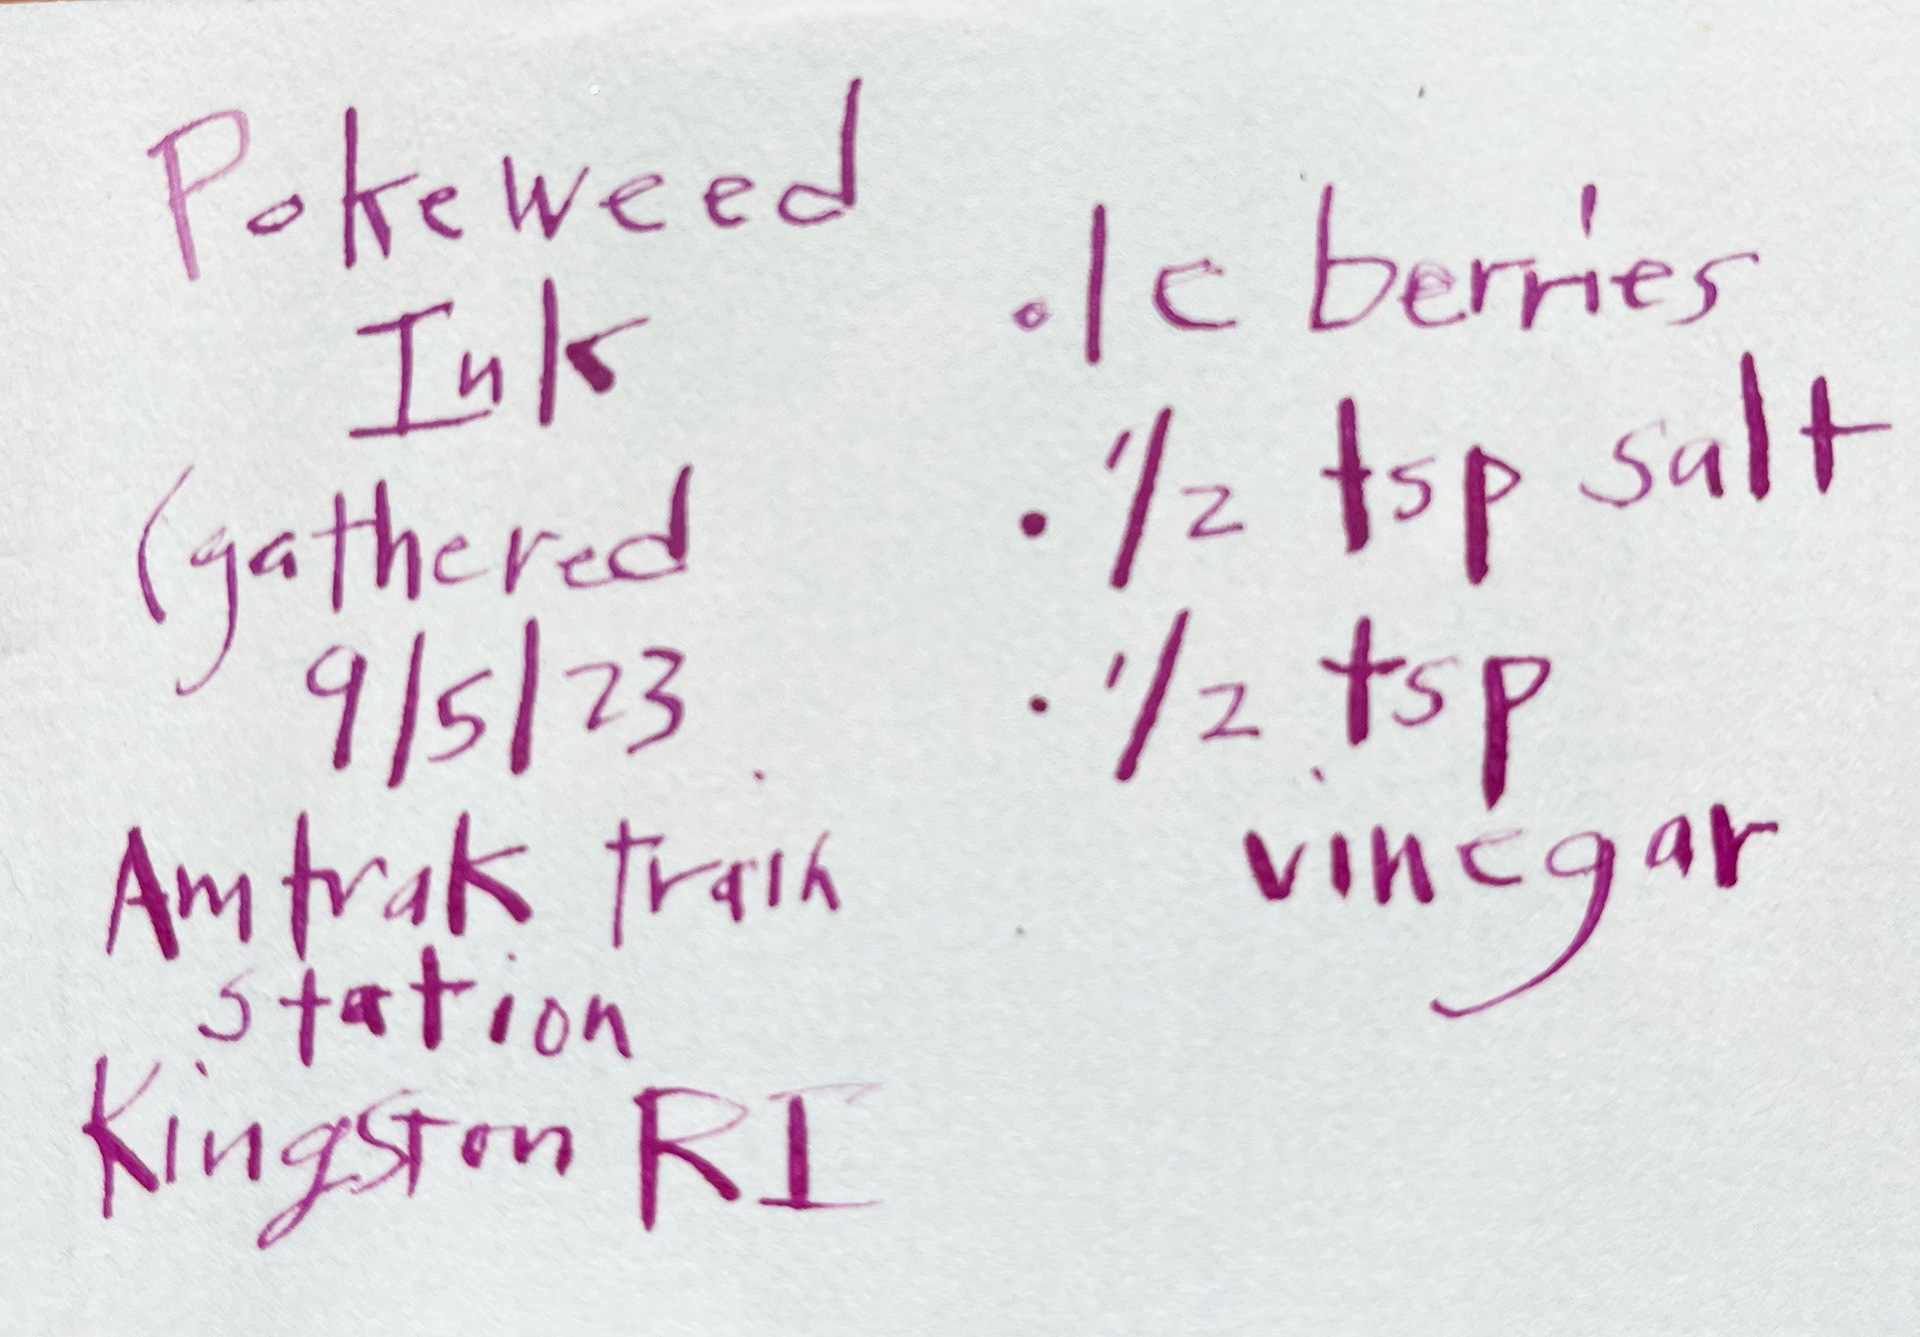 Pokeweed
Ink
(gathered
9/5/23
Amtrak train
station
Kingston RI
• 1c berries
• 1/2 tsp salt
• 1/2 tsp
vinegar